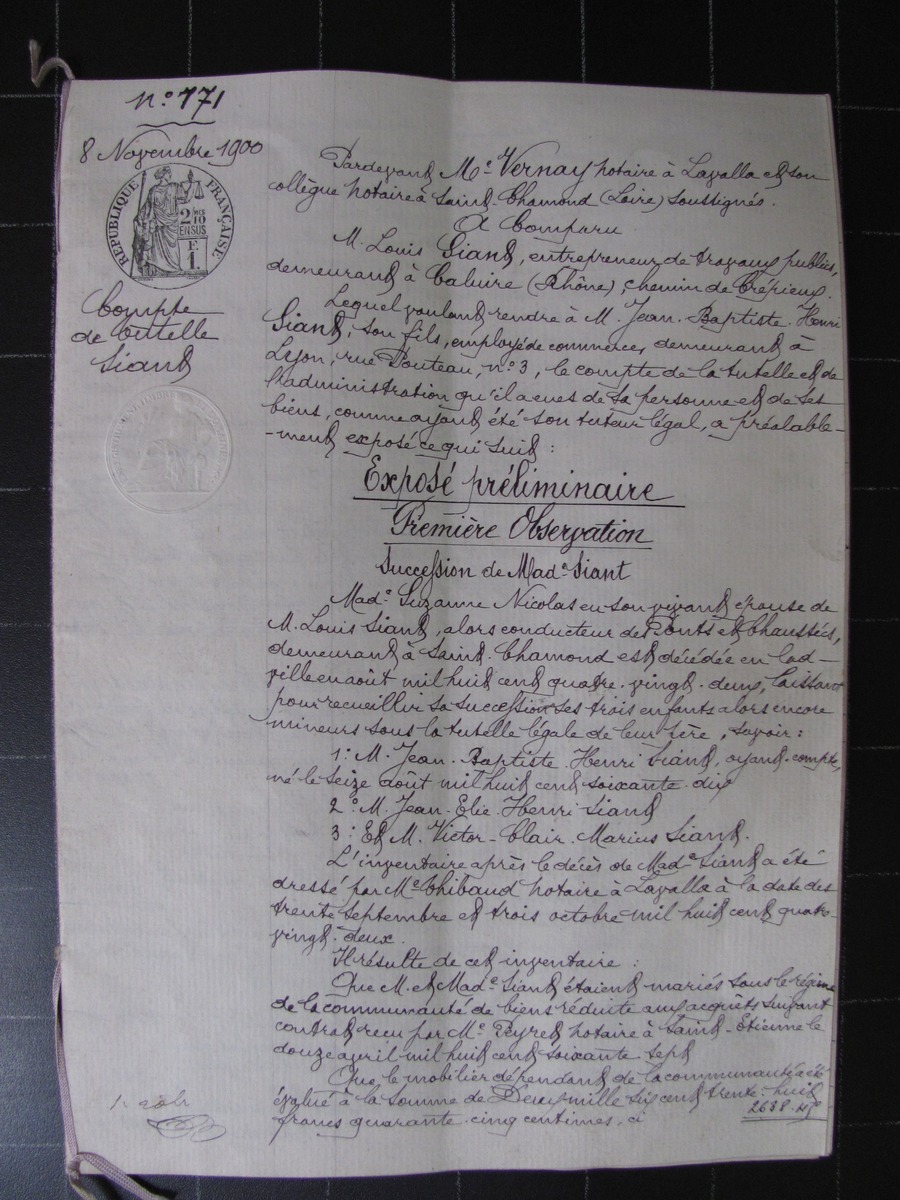 n.° 171
8 Novembre 1900
RÉPUBLIQUE FRANÇAISE
2/10
EN SUS
F.
1.
Compte
de tutelle
Siant
Pardevant Me Vernay notaire à Lavalla et son
collègue notaire à Saint-Chamond (Loire) soussignés.
A Comparu
M. Louis Siant, entrepreneur de travaux publics,
demeurant à Caluire (Rhône) chemin de Crépieux.
Lequel voulant rendre à M. Jean-Baptiste Henri
Siant, son fils, employé de commerce, demeurant à
Lyon, rue Pouteau, n.° 3, le compte de la tutelle et de
l'administration qu'il a eues de sa personne et de ses
biens, comme ayant été son tuteur légal, a préalable-
-ment exposé ce qui suit :
Exposé préliminaire
Première Observation
Succession de Made Siant
Made Suzanne Nicolas en son vivant épouse de
M. Louis Siant, alors conducteur des Ponts et Chaussées,
demeurant à Saint-Chamond est décédée en lad-
ville en août mil huit cent quatre-vingt-deux, laissant
pour recueillir sa succession ses trois enfants alors encore
mineurs sous la tutelle légale de leur père, savoir :
1° M. Jean-Baptiste Henri Siant, oyant-compte,
né le seize août mil huit cent soixante-dix
2° M. Jean-Elie-Henri Siant
3° Et M. Victor-Clair-Marius Siant.
L'inventaire après le décès de Made Siant a été
dressé par Me Thibaud notaire à Lavalla à la date des
trente septembre et trois octobre mil huit cent quatre-
vingt-deux.
Il résulte de cet inventaire :
Que M. et Made Siant étaient mariés sous le régime
de la communauté de biens réduite aux acquêts suivant
contrat reçu par Me Peyret notaire à Saint-Etienne le
douze avril mil huit cent soixante sept
Que le mobilier dépendant de la communauté a été
évalué à la somme de Deux mille six cent trente-huit
francs quarante-cinq centimes, ci 2638.45